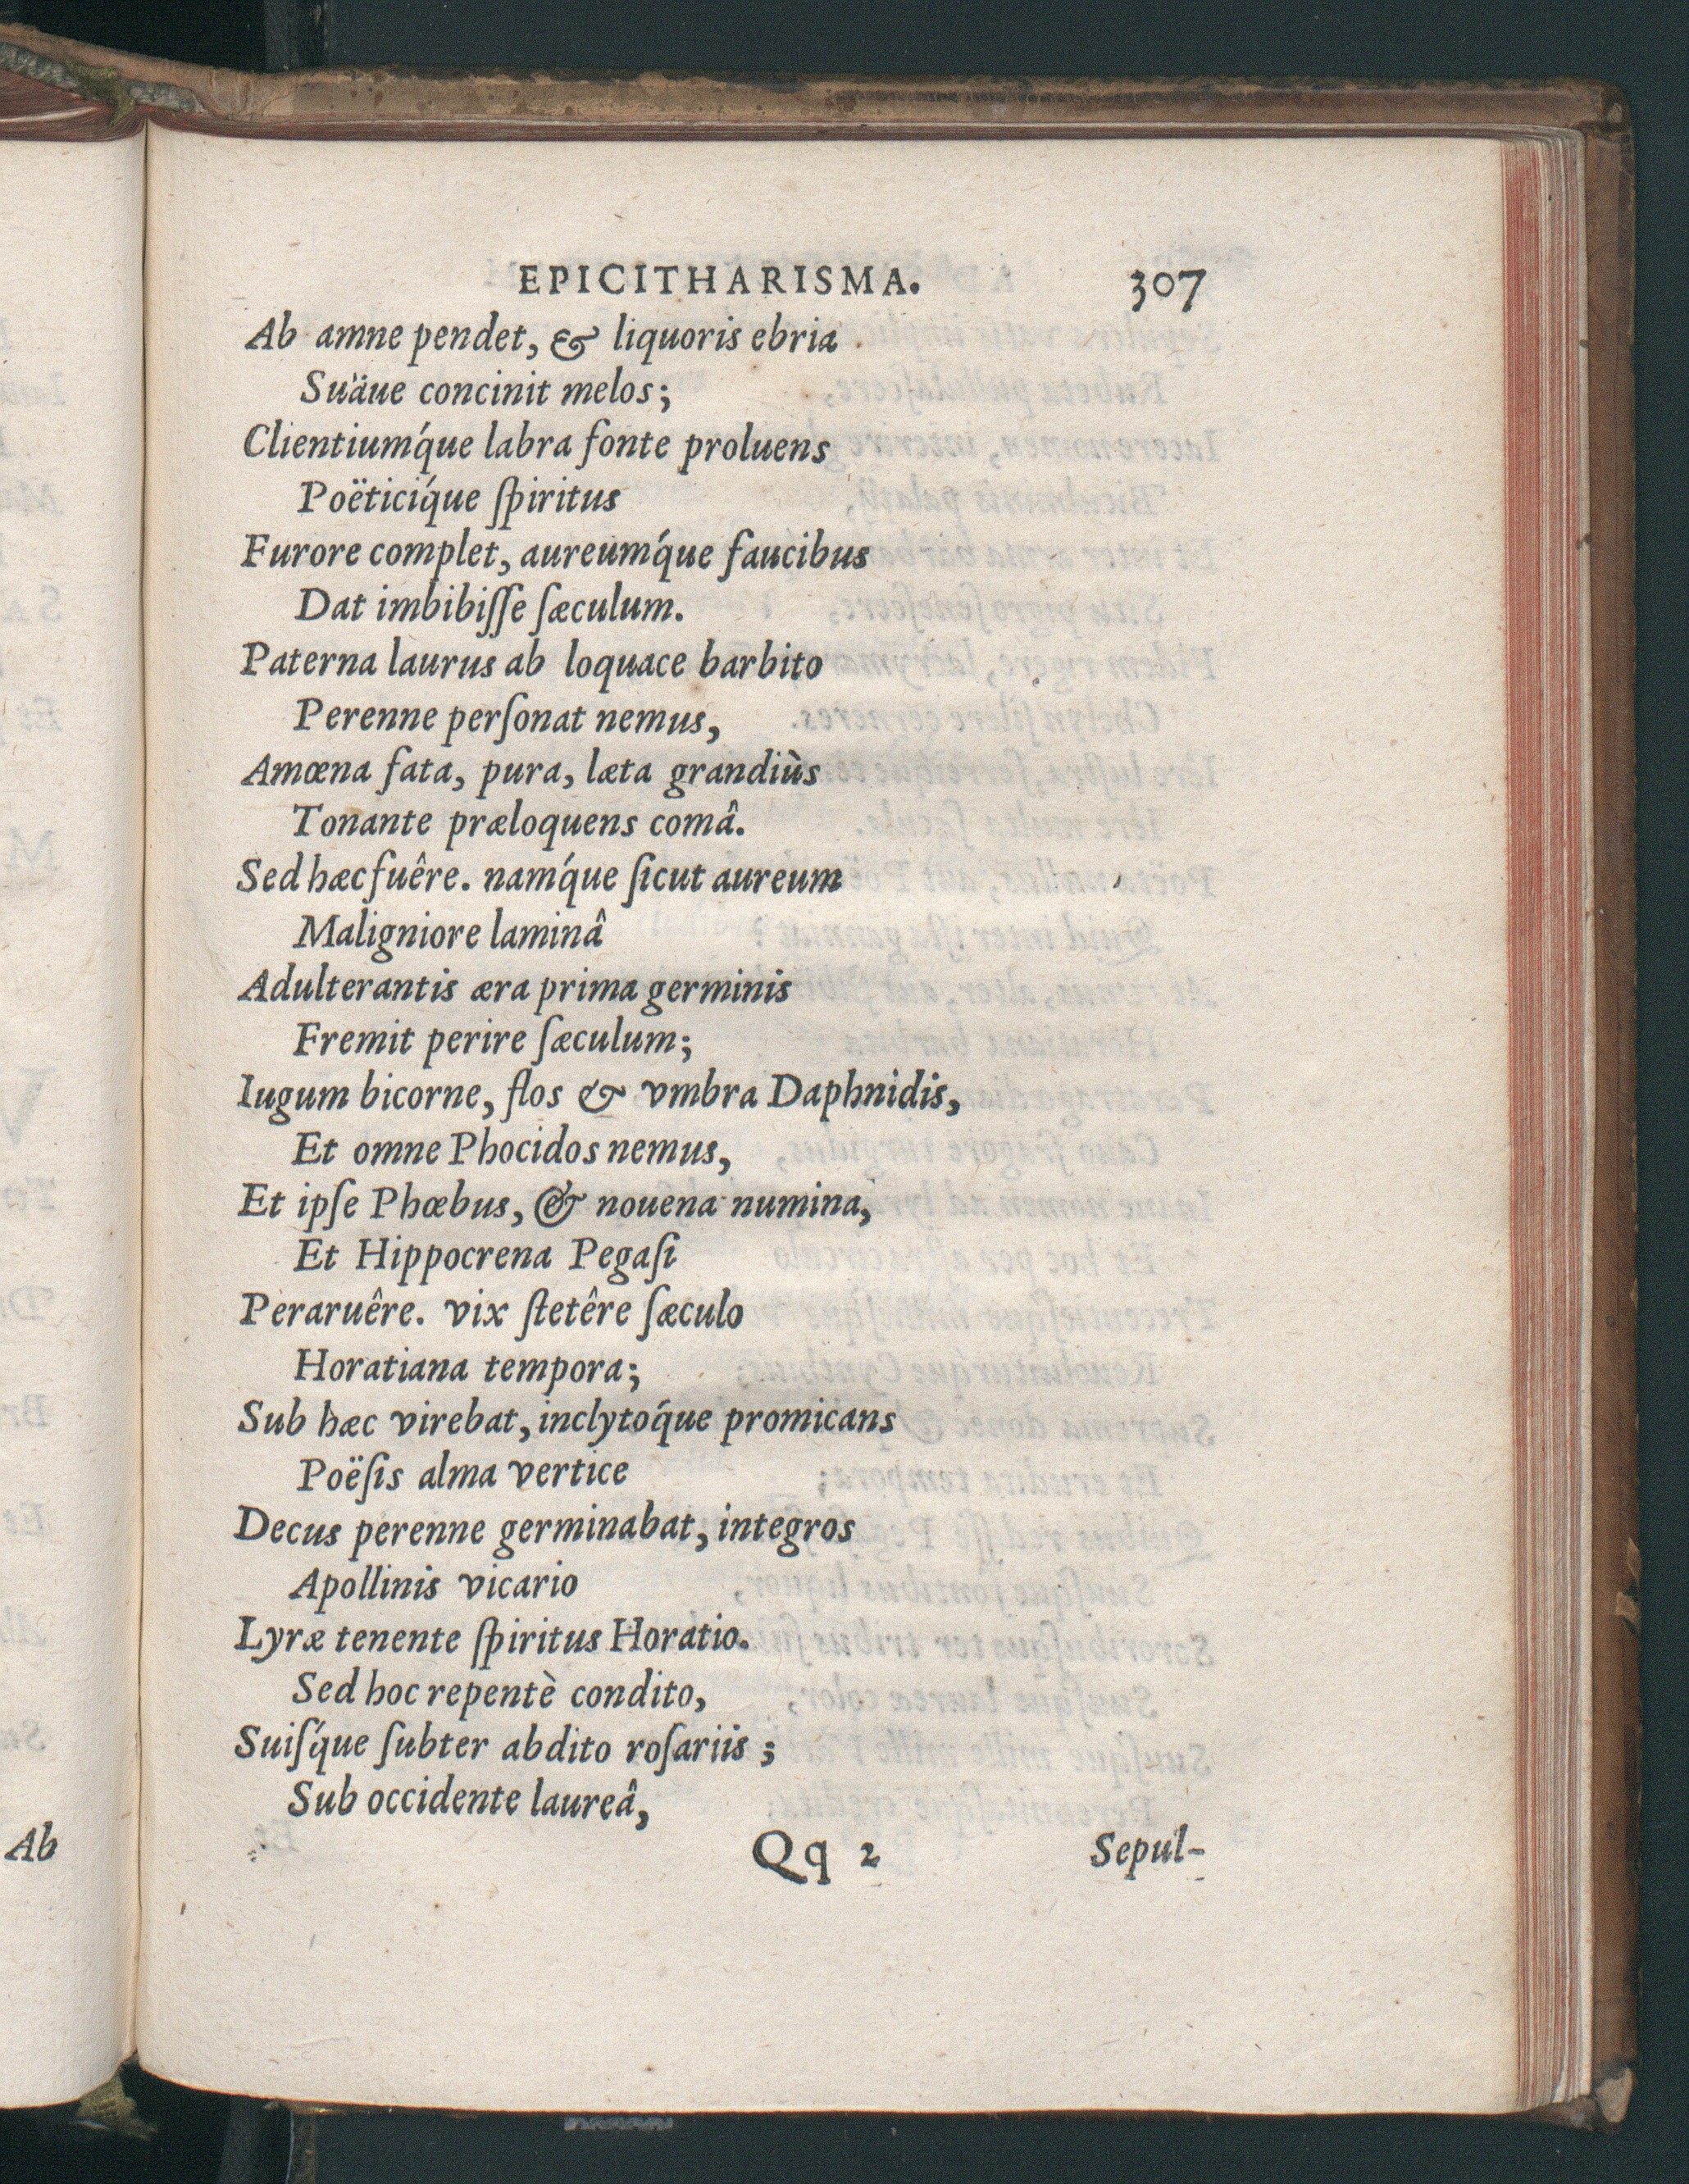 EPICITHARISMA. 307
Ab amne pendet, & liquoris ebria
Suäue concinit melos;
Clientiumq́ue labra fonte proluens
Poëticiq́ue ſpiritus
Furore complet, aureumq́ue faucibus
Dat imbibiſſe ſæculum.
Paterna laurus ab loquace barbito
Perenne perſonat nemus,
Amœna fata, pura, læta grandiùs
Tonante præloquens comâ.
Sed hæc fuêre. namq́ue ſicut aureum
Maligniore laminâ
Adulterantis æra prima germinis
Fremit perire ſæculum;
Iugum bicorne, flos & vmbra Daphnidis,
Et omne Phocidos nemus,
Et ipſe Phœbus, & nouena numina,
Et Hippocrena Pegaſi
Peraruêre. vix ſtetêre ſæculo
Horatiana tempora;
Sub hæc virebat, inclytoq́ue promicans
Poëſis alma vertice
Decus perenne germinabat, integros
Apollinis vicario
Lyræ tenente ſpiritus Horatio.
Sed hoc repentè condito,
Suiſq́ue ſubter abdito roſariis;
Sub occidente laureâ,
Qq 2 Sepul-
Ab